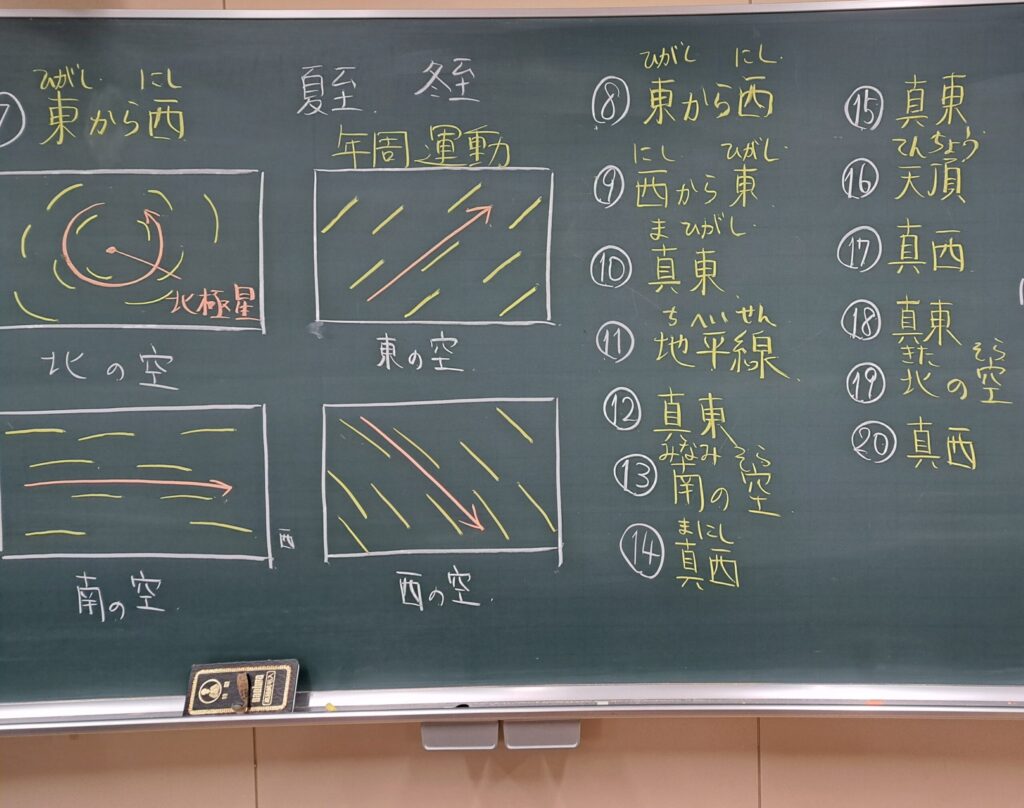 ⑦ ひがし にし
東から西
夏至 冬至
年周運動
北極星
北の空
東の空
西
南の空
西の空
ひがし にし
⑧ 東から西
にし ひがし
⑨ 西から東
ま ひがし
⑩ 真東
ちへいせん
⑪ 地平線
⑫ 真東
みなみ そら
⑬ 南の空
まにし
⑭ 真西
⑮ 真東
てんちょう
⑯ 天頂
⑰ 真西
⑱ 真東
きた そら
⑲ 北の空
⑳ 真西